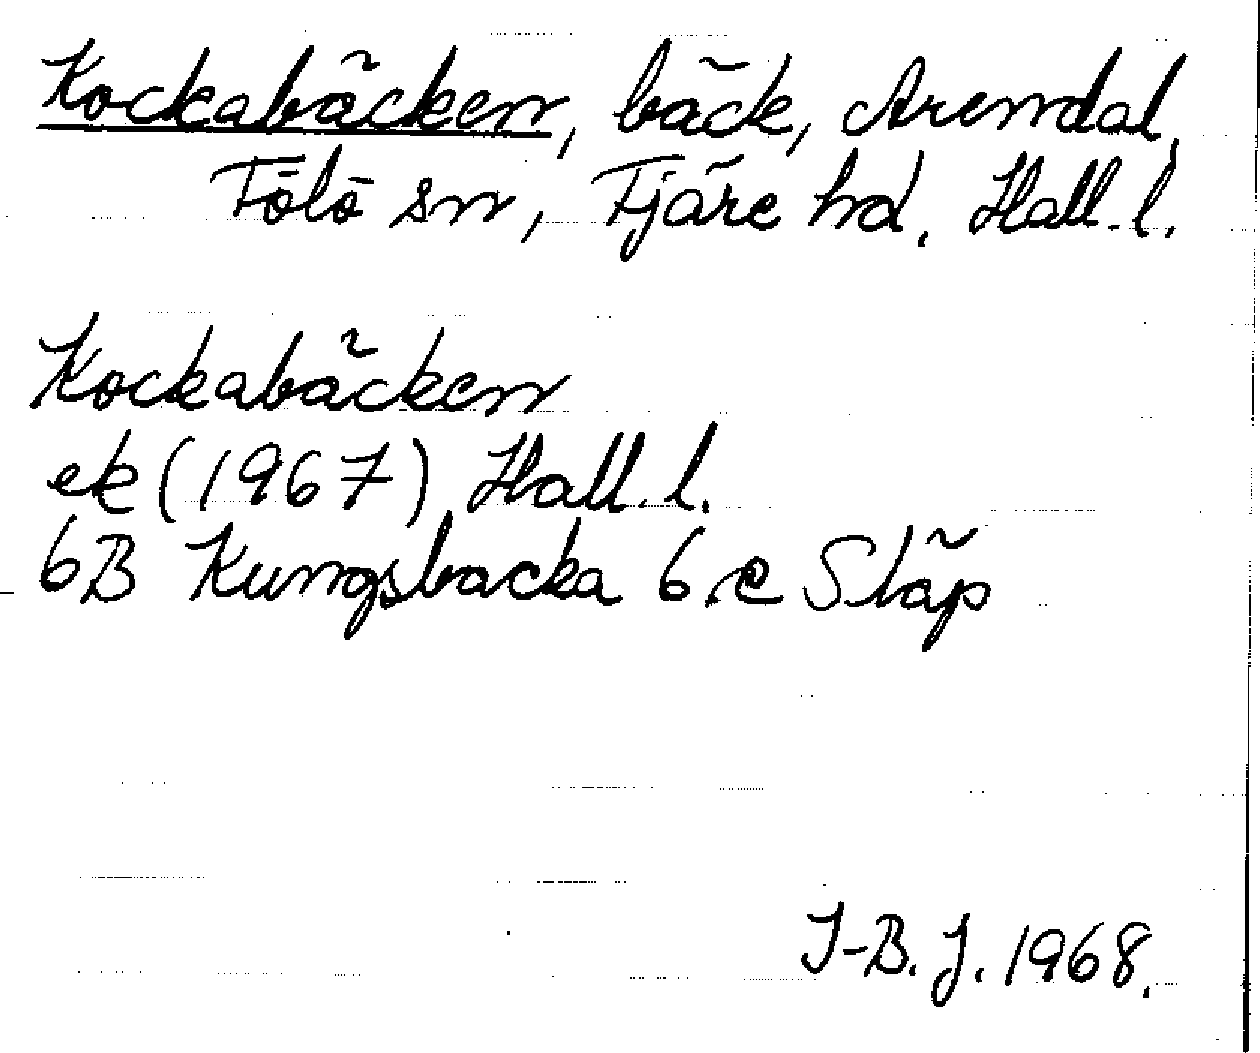 Kockabäcken, bäck, Arendal,
Fölö sn, Fjäre hd. Hall. l.
Kockabäcken
ek (1967) Hall. l.
6B Kungsbacka 6 e Släp
I-B. J. 1968.